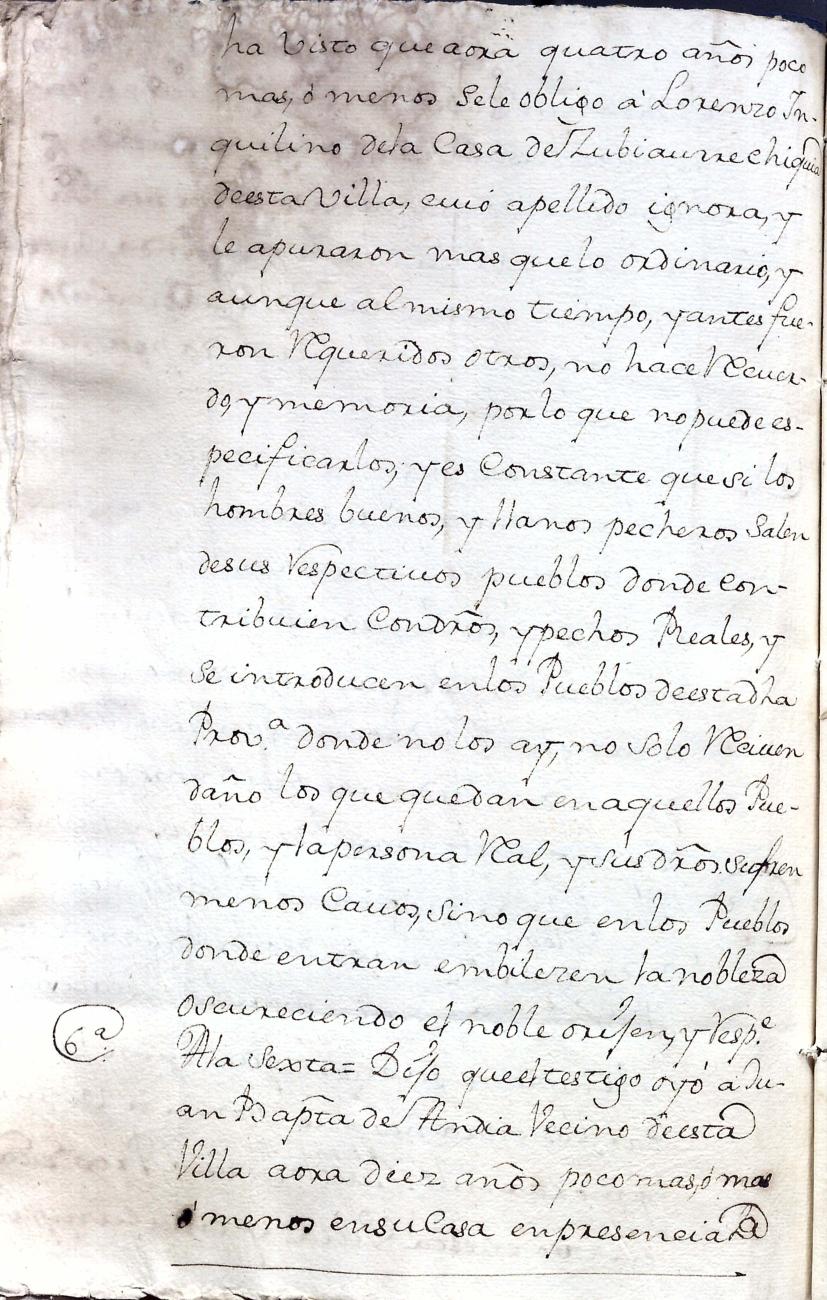 ha visto que aora quatro años poco
mas, o menos sele obligo a Lorenzo In-
quilino dela Casa de Zubiaurrechiquia
deesta Villa, cuio apellido ignora, y
le apuraron mas quelo ordinario, y
aunque al mismo tiempo, y antes fue-
ron Requeridos otros, no hace Recuer-
do, y memoria, por lo que no puede es-
pecificarlos, y es Constante que si los
hombres buenos, y llanos pecheros Salen
desus Respectiuos pueblos donde Con-
tribuien Con drõs, y pechos Reales, y
Se introducen enlos Pueblos deesta dha
Prov.ª donde no los ay, no solo Reciuen
daño los que quedan en aquellos Pue-
blos, y la persona Real, y sus drõs. sufren
menos Cauos, sino que enlos Pueblos
donde entran embilezen la nobleza
oscureciendo el noble orijen, y Resp.e
6ª
Ala Sexta= Dijo queel testigo oyó a Ju-
an Bapta de Andia Vecino deesta
Villa aora diez años poco mas, o mas
o menos ensu Casa en presencia